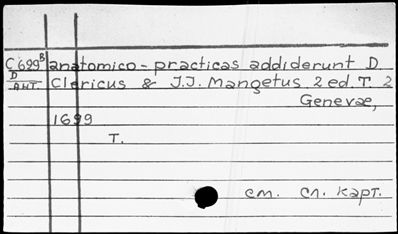 C699B anatomico-practicas addiderunt D.
D
АНТ. Clericus & J.J. Mangetus. 2 ed. T. 2
Genevæ,
1699
T.
см. сл. карт.